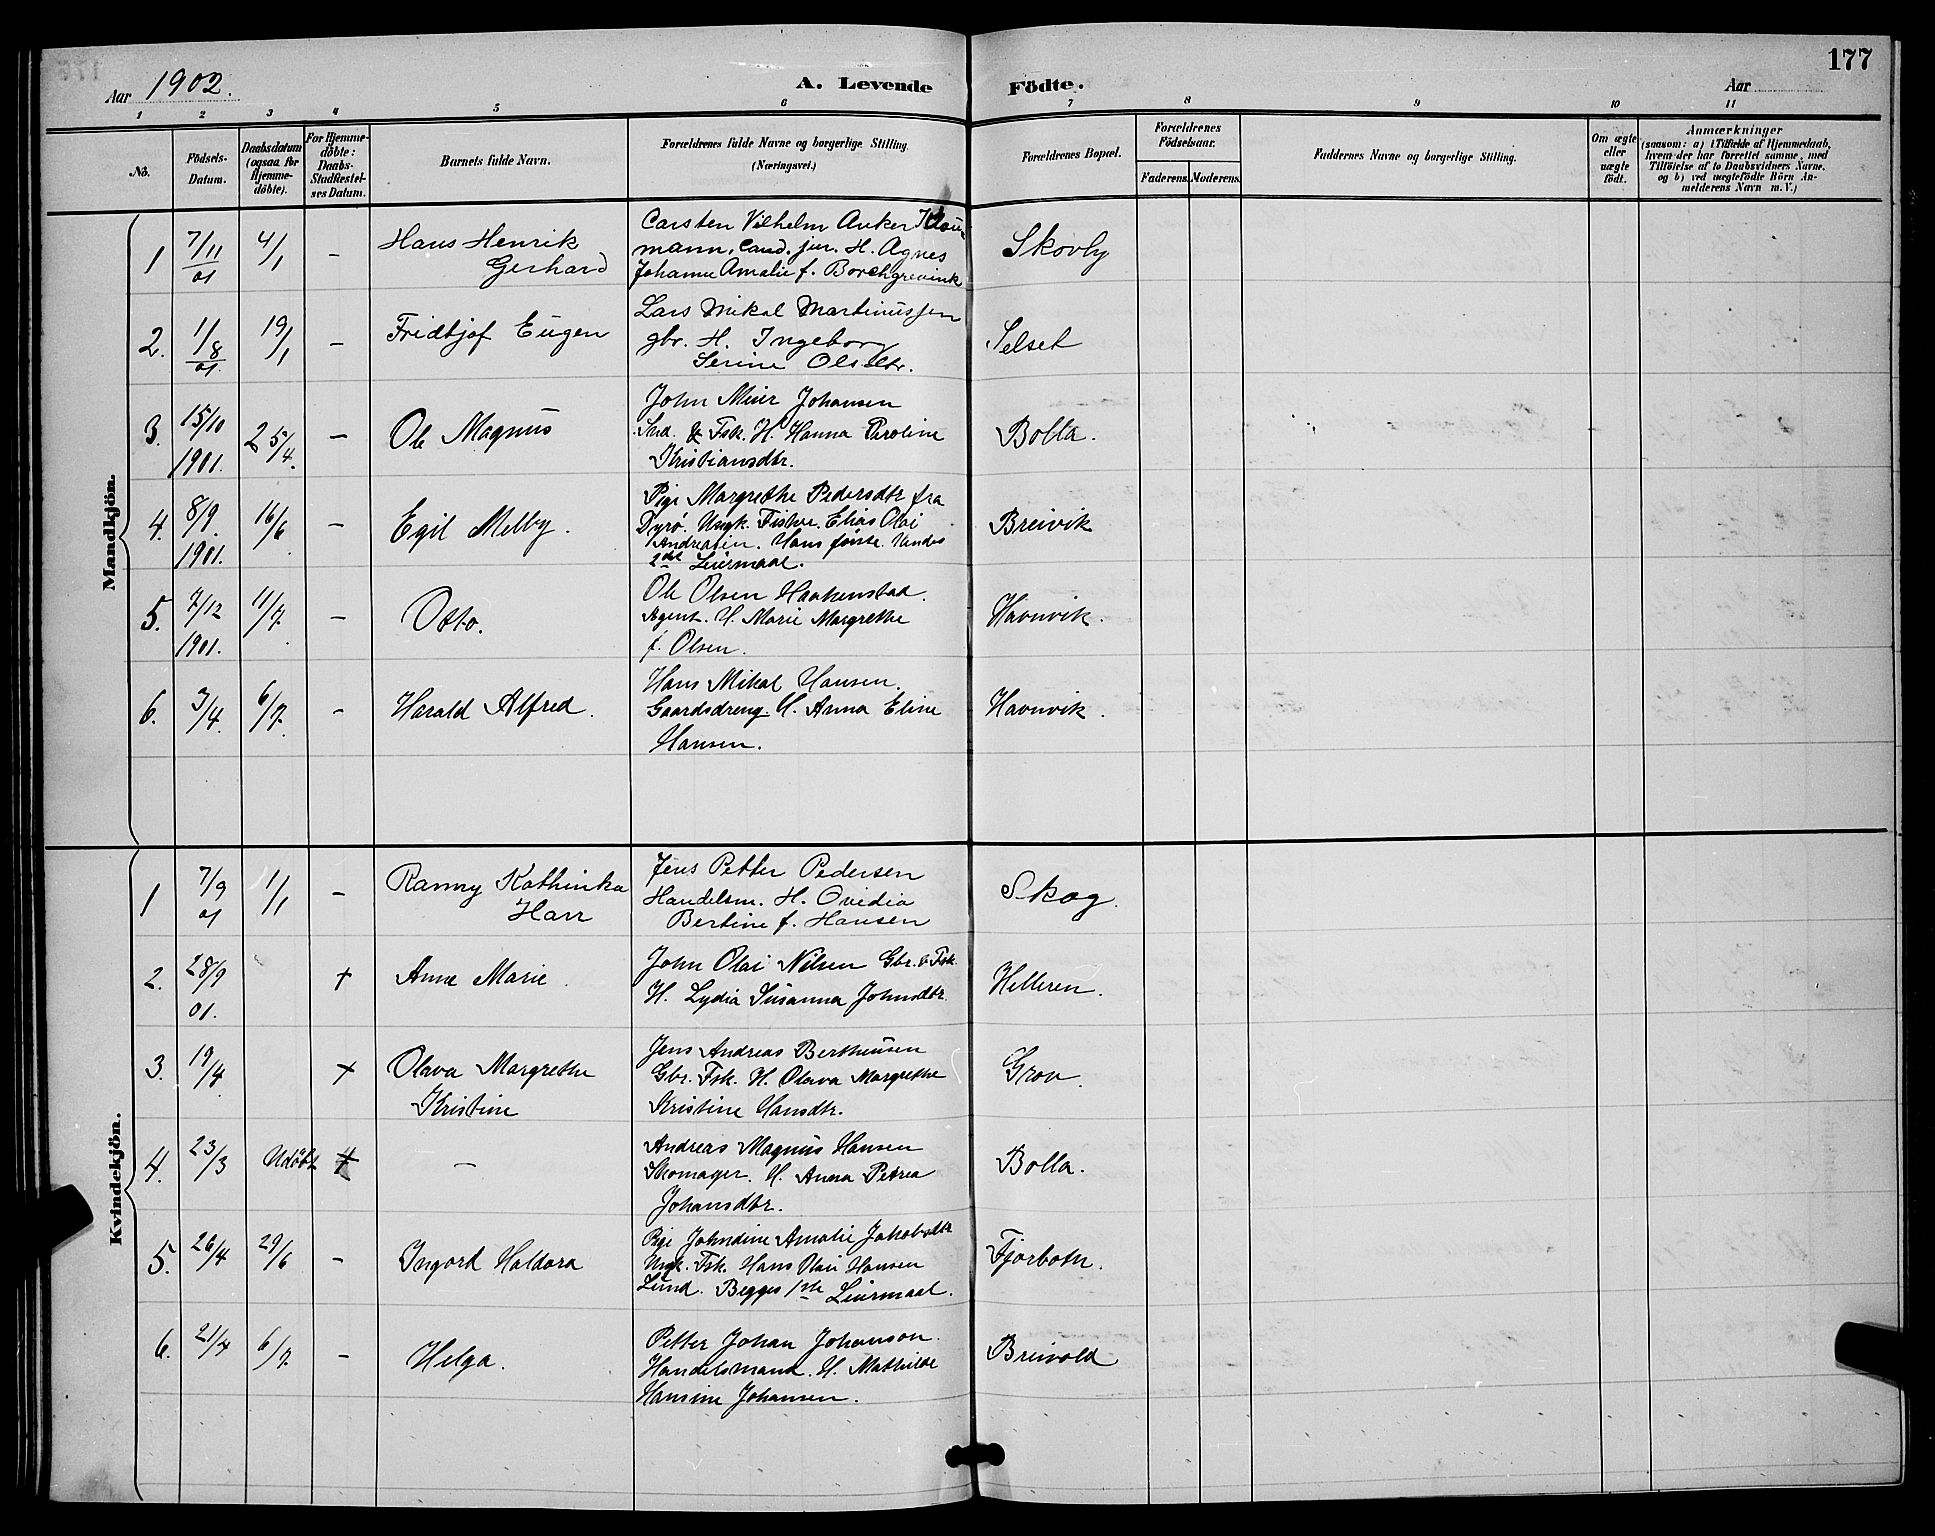 177
Aar 1902.
A. Levende Födte.
Aar
1 2 3 4 5 6 7 8 9 10 11
No.
Födsels-
Datum.
Daabsdatum
(ogsaa for
Hjemme-
döbte).
For Hjemme-
döbte:
Daabs-
Stadfæstel-
ses Datum.
Barnets fulde Navn.
Forældrenes fulde Navne og borgerlige Stilling.
(Næringsvei.)
Forældrenes Bopæl.
Forældrenes
Födselsaar.
Faderens. Moderens.
Faddernes Navne og borgerlige Stilling.
Om ægte
eller
uægte
födt.
Anmærkninger
(saasom: a) i Tilfælde af Hjemmedaab,
hvem der har forrettet samme, med
Tilföielse af to Daabsvidners Navne,
og b) ved uægtefödte Börn An-
melderens Navn m. V.)
Mandkjön.
1 7/11 01 4/1 - Hans Henrik
Gerhard
Carsten Vilhelm Anker
mann, Cand. jur. H. Agnes
Johanne Amalie f. Borchgrevink
Skovly
2. 1/8 01. 19/1 - Fridtjof Eugen
Lars Mikal Martinussen
gbr. H. Ingeborg
Serine Olsdtr.
Selset
3. 15/10 1901. 25/4. - Ole Magnus
John Meier Johansen
Ind. & Fsk. H. Hanna Paroline
Kristiansdtr.
Bolla.
4. 8/9. 1901. 16/6 - Egil Melby.
Pige Margrethe Pedersdtr fra
Dyrö. Ungk. Fisker. Elias Olai
Andreasen. Hans förste. Hendes
2det Leiermaal.
Breivik
5. 7/12 1901. 11/7. - Otto.
Ole Olsen Haakenstad.
Agent. H. Marie Margrethe
f. Olsen.
Havnvik.
6. 3/4. 6/7. - Harald Alfred.
Hans Mikal Hansen.
Gaardsdreng. H. Anna Eline
Hansen.
Havnvik.
Kvindekjön.
1 7/9 01 1/1 - Ranny Kathinka
Harr
Jens Petter Pedersen
Handelsm. H. Ovidia
Bertine f. Hansen
Skog.
2. 28/9 01. + Anna Marie.
John Olai Nilsen Gbr. & Fsk.
H. Lydia Susanna Johnsdtr.
Helleren.
3. 19/4. + Olava Margrethe
Kristine
Jens Andreas Bertheusen
Gbr. Fsk. H. Olava Margrethe
Kristine Hansdtr.
Grov.
4. 23/3 Udöbt + -
Andreas Magnus Hansen
Skomager. H. Anna Petrea
Johansdtr.
Bolla.
5. 26/4 29/6 - Ingord Haldora
Pige Johndine Amalie Jakobsdtr
Ungk. Fsk. Hans Olai Hansen
Lund. Begges 1ste Leiermaal.
Fjorbotn.
6. 21/4 6/7. - Helga.
Petter Johan Johanson.
Handelsmand. H. Mathilde
Hansine Johansen.
Breivold